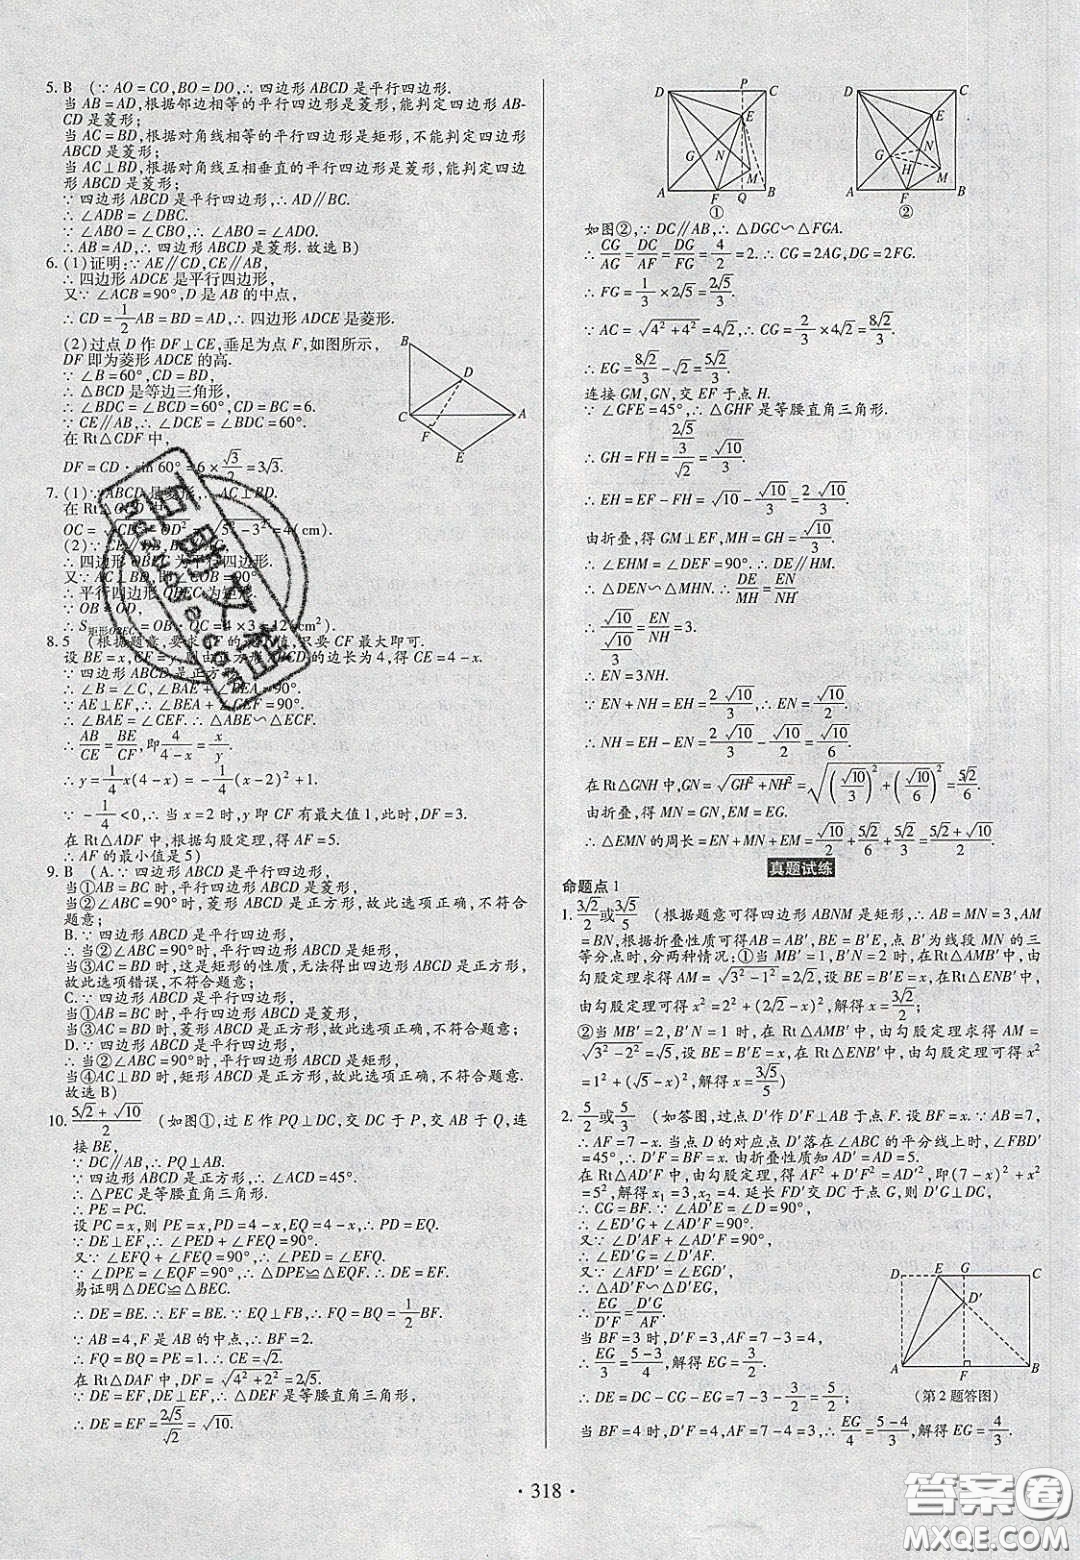 5. B (∵AO=CO,BO=DO,∴四边形ABCD是平行四边形.
当AB=AD,根据邻边相等的平行四边形是菱形,能判定四边形AB-
CD是菱形;
当AC=BD,根据对角线相等的平行四边形是矩形,不能判定四边形
ABCD是菱形;
当AC⊥BD,根据对角线互相垂直的平行四边形是菱形,能判定四边
形ABCD是菱形;
∵四边形ABCD是平行四边形,∴AD∥BC.
∴∠ADB=∠DBC.
∵∠ABO=∠CBO,∴∠ABO=∠ADO.
∴AB=AD,∴四边形ABCD是菱形.故选B)
6. (1)证明:∵AE∥CD,CE∥AB,
∴四边形ADCE是平行四边形,
又∵∠ACB=90°,D是AB的中点,
∴CD=1/2AB=BD=AD,∴四边形ADCE是菱形.
(2)过点D作DF⊥CE,垂足为点F,如图所示,
DF即为菱形ADCE的高.
∵∠B=60°,CD=BD,
∴△BCD是等边三角形,
∴∠BDC=∠BCD=60°,CD=BC=6.
∵CE∥AB,∴∠DCE=∠BDC=60°.
在Rt△CDF中,
DF=CD·sin 60°=6×√3/2=3√3.
B D C A F E
7. (1)∵ABCD是菱形,∴AC⊥BD.
在Rt△OCD中,
OC=√(CD²-OD²)=√(5²-3²)=4(cm).
(2)∵CE∥DB,BE∥AC,
∴四边形OBEC为平行四边形.
又∵AC⊥BD,即∠COB=90°,
∴平行四边形OBEC为矩形.
∵OB=OD,
∴S矩形OBEC=OB·OC=4×3=12(cm²).
8. 5 (根据题意,要求AF的最小值,只要CF最大即可.
设BE=x,CF=y,则由正方形ABCD的边长为4,得CE=4-x.
∵四边形ABCD是正方形,
∴∠B=∠C,∠BAE+∠BEA=90°.
∵AE⊥EF,∴∠BEA+∠CEF=90°.
∴∠BAE=∠CEF.∴△ABE∽△ECF.
∴AB/CE=BE/CF,即4/(4-x)=x/y.
∴y=1/4x(4-x)=-1/4(x-2)²+1.
∵-1/4<0,∴当x=2时,y即CF有最大值1,此时,DF=3.
在Rt△ADF中,根据勾股定理,得AF=5.
∴AF的最小值是5)
9. B (A.∵四边形ABCD是平行四边形,
当①AB=BC时,平行四边形ABCD是菱形,
当②∠ABC=90°时,菱形ABCD是正方形,故此选项正确,不符合
题意;
B.∵四边形ABCD是平行四边形,
∴当②∠ABC=90°时,平行四边形ABCD是矩形,
当③AC=BD时,这是矩形的性质,无法得出四边形ABCD是正方形,
故此选项错误,不符合题意;
C.∵四边形ABCD是平行四边形,
当①AB=BC时,平行四边形ABCD是菱形,
当③AC=BD时,菱形ABCD是正方形,故此选项正确,不符合题意;
D.∵四边形ABCD是平行四边形,
∴当②∠ABC=90°时,平行四边形ABCD是矩形,
当④AC⊥BD时,矩形ABCD是正方形,故此选项正确,不符合题意.
故选B)
10. (5√2+√10)/2 (如图①,过E作PQ⊥DC,交DC于P,交AB于Q,连
接BE,
∵DC∥AB,∴PQ⊥AB.
∵四边形ABCD是正方形,∴∠ACD=45°.
∴△PEC是等腰直角三角形.
∴PE=PC.
设PC=x,则PE=x,PD=4-x,EQ=4-x,∴PD=EQ.
∵DE⊥EF,∴∠PED+∠FEQ=90°.
又∵∠EFQ+∠FEQ=90°,∴∠PED=∠EFQ.
∵∠DPE=∠EQF=90°,∴△DPE≌△EQF.∴DE=EF.
易证明△DEC≌△BEC.
∴DE=BE.∴EF=BE.∵EQ⊥FB,∴FQ=BQ=1/2BF.
∵AB=4,F是AB的中点,∴BF=2.
∴FQ=BQ=PE=1.∴CE=√2.
在Rt△DAF中,DF=√(4²+2²)=2√5.
∵DE=EF,DE⊥EF,∴△DEF是等腰直角三角形,
∴DE=EF=2√5/√2=√10.
D P C E G N M A F Q B ①
D C E G N H M A F B ②
如图②,∵DC∥AB,∴△DGC∽△FGA.
∴CG/AG=DC/AF=DG/FG=4/2=2.∴CG=2AG,DG=2FG.
∴FG=1/3×2√5=2√5/3.
∵AC=√(4²+4²)=4√2,∴CG=2/3×4√2=8√2/3.
∴EG=8√2/3-√2=5√2/3.
连接GM,GN,交EF于点H.
∵∠GFE=45°,∴△GHF是等腰直角三角形.
∴GH=FH=(2√5/3)/√2=√10/3.
∴EH=EF-FH=√10-√10/3=2√10/3.
由折叠,得GM⊥EF,MH=GH=√10/3.
∴∠EHM=∠DEF=90°.∴DE∥HM.
∴△DEN∽△MHN.∴DE/MH=EN/NH.
∴√10/(√10/3)=EN/NH=3.
∴EN=3NH.
∵EN+NH=EH=2√10/3,∴EN=√10/2.
∴NH=EH-EN=2√10/3-√10/2=√10/6.
在Rt△GNH中,GN=√(GH²+NH²)=√((√10/3)²+(√10/6)²)=5√2/6.
由折叠,得MN=GN,EM=EG.
∴△EMN的周长=EN+MN+EM=√10/2+5√2/6+5√2/3=(5√2+√10)/2)
真题试练
命题点1
1. 3√2/2或3√5/5 (根据题意可得四边形ABNM是矩形,∴AB=MN=3,AM
=BN,根据折叠性质可得AB=AB′,BE=B′E,点B′为线段MN的三
等分点时,分两种情况:①当MB′=1,B′N=2时,在Rt△AMB′中,由
勾股定理求得AM=√(3²-1²)=2√2,设BE=B′E=x,在Rt△ENB′中,
由勾股定理可得x²=2²+(2√2-x)²,解得x=3√2/2;
②当MB′=2,B′N=1时,在Rt△AMB′中,由勾股定理求得AM=
√(3²-2²)=√5,设BE=B′E=x,在Rt△ENB′中,由勾股定理可得x²
=1²+(√5-x)²,解得x=3√5/5)
2. 5/2或5/3 (如答图,过点D′作D′F⊥AB于点F.设BF=x.∵AB=7,
∴AF=7-x.当点D的对应点D′落在∠ABC的平分线上时,∠FBD′
=45°,∴D′F=BF=x.由折叠性质知AD′=AD=5.
在Rt△AD′F中,由勾股定理,得AF²+D′F²=AD′²,即(7-x)²+x²
=5²,解得x₁=3,x₂=4.延长FD′交DC于点G,则D′G⊥DC,
∴CG=BF.∵∠AD′E=∠D=90°,
∴∠ED′G+∠AD′F=90°.
∴∠ED′G=∠D′AF.
又∵∠AFD′=∠EGD′,
∴△AD′F∽△D′EG,
∴EG/D′F=D′G/AF.
当BF=3时,D′F=3,AF=7-3=4,
∴EG/3=(5-3)/4,解得EG=3/2.
∴DE=DC-CG-EG=7-3-3/2=5/2;
当BF=4时,D′F=4,AF=7-4=3,∴EG/4=(5-4)/3,解得EG=4/3.
D E G C D′ A F B
(第2题答图)
· 318 ·
答案圈
MXQE.COM